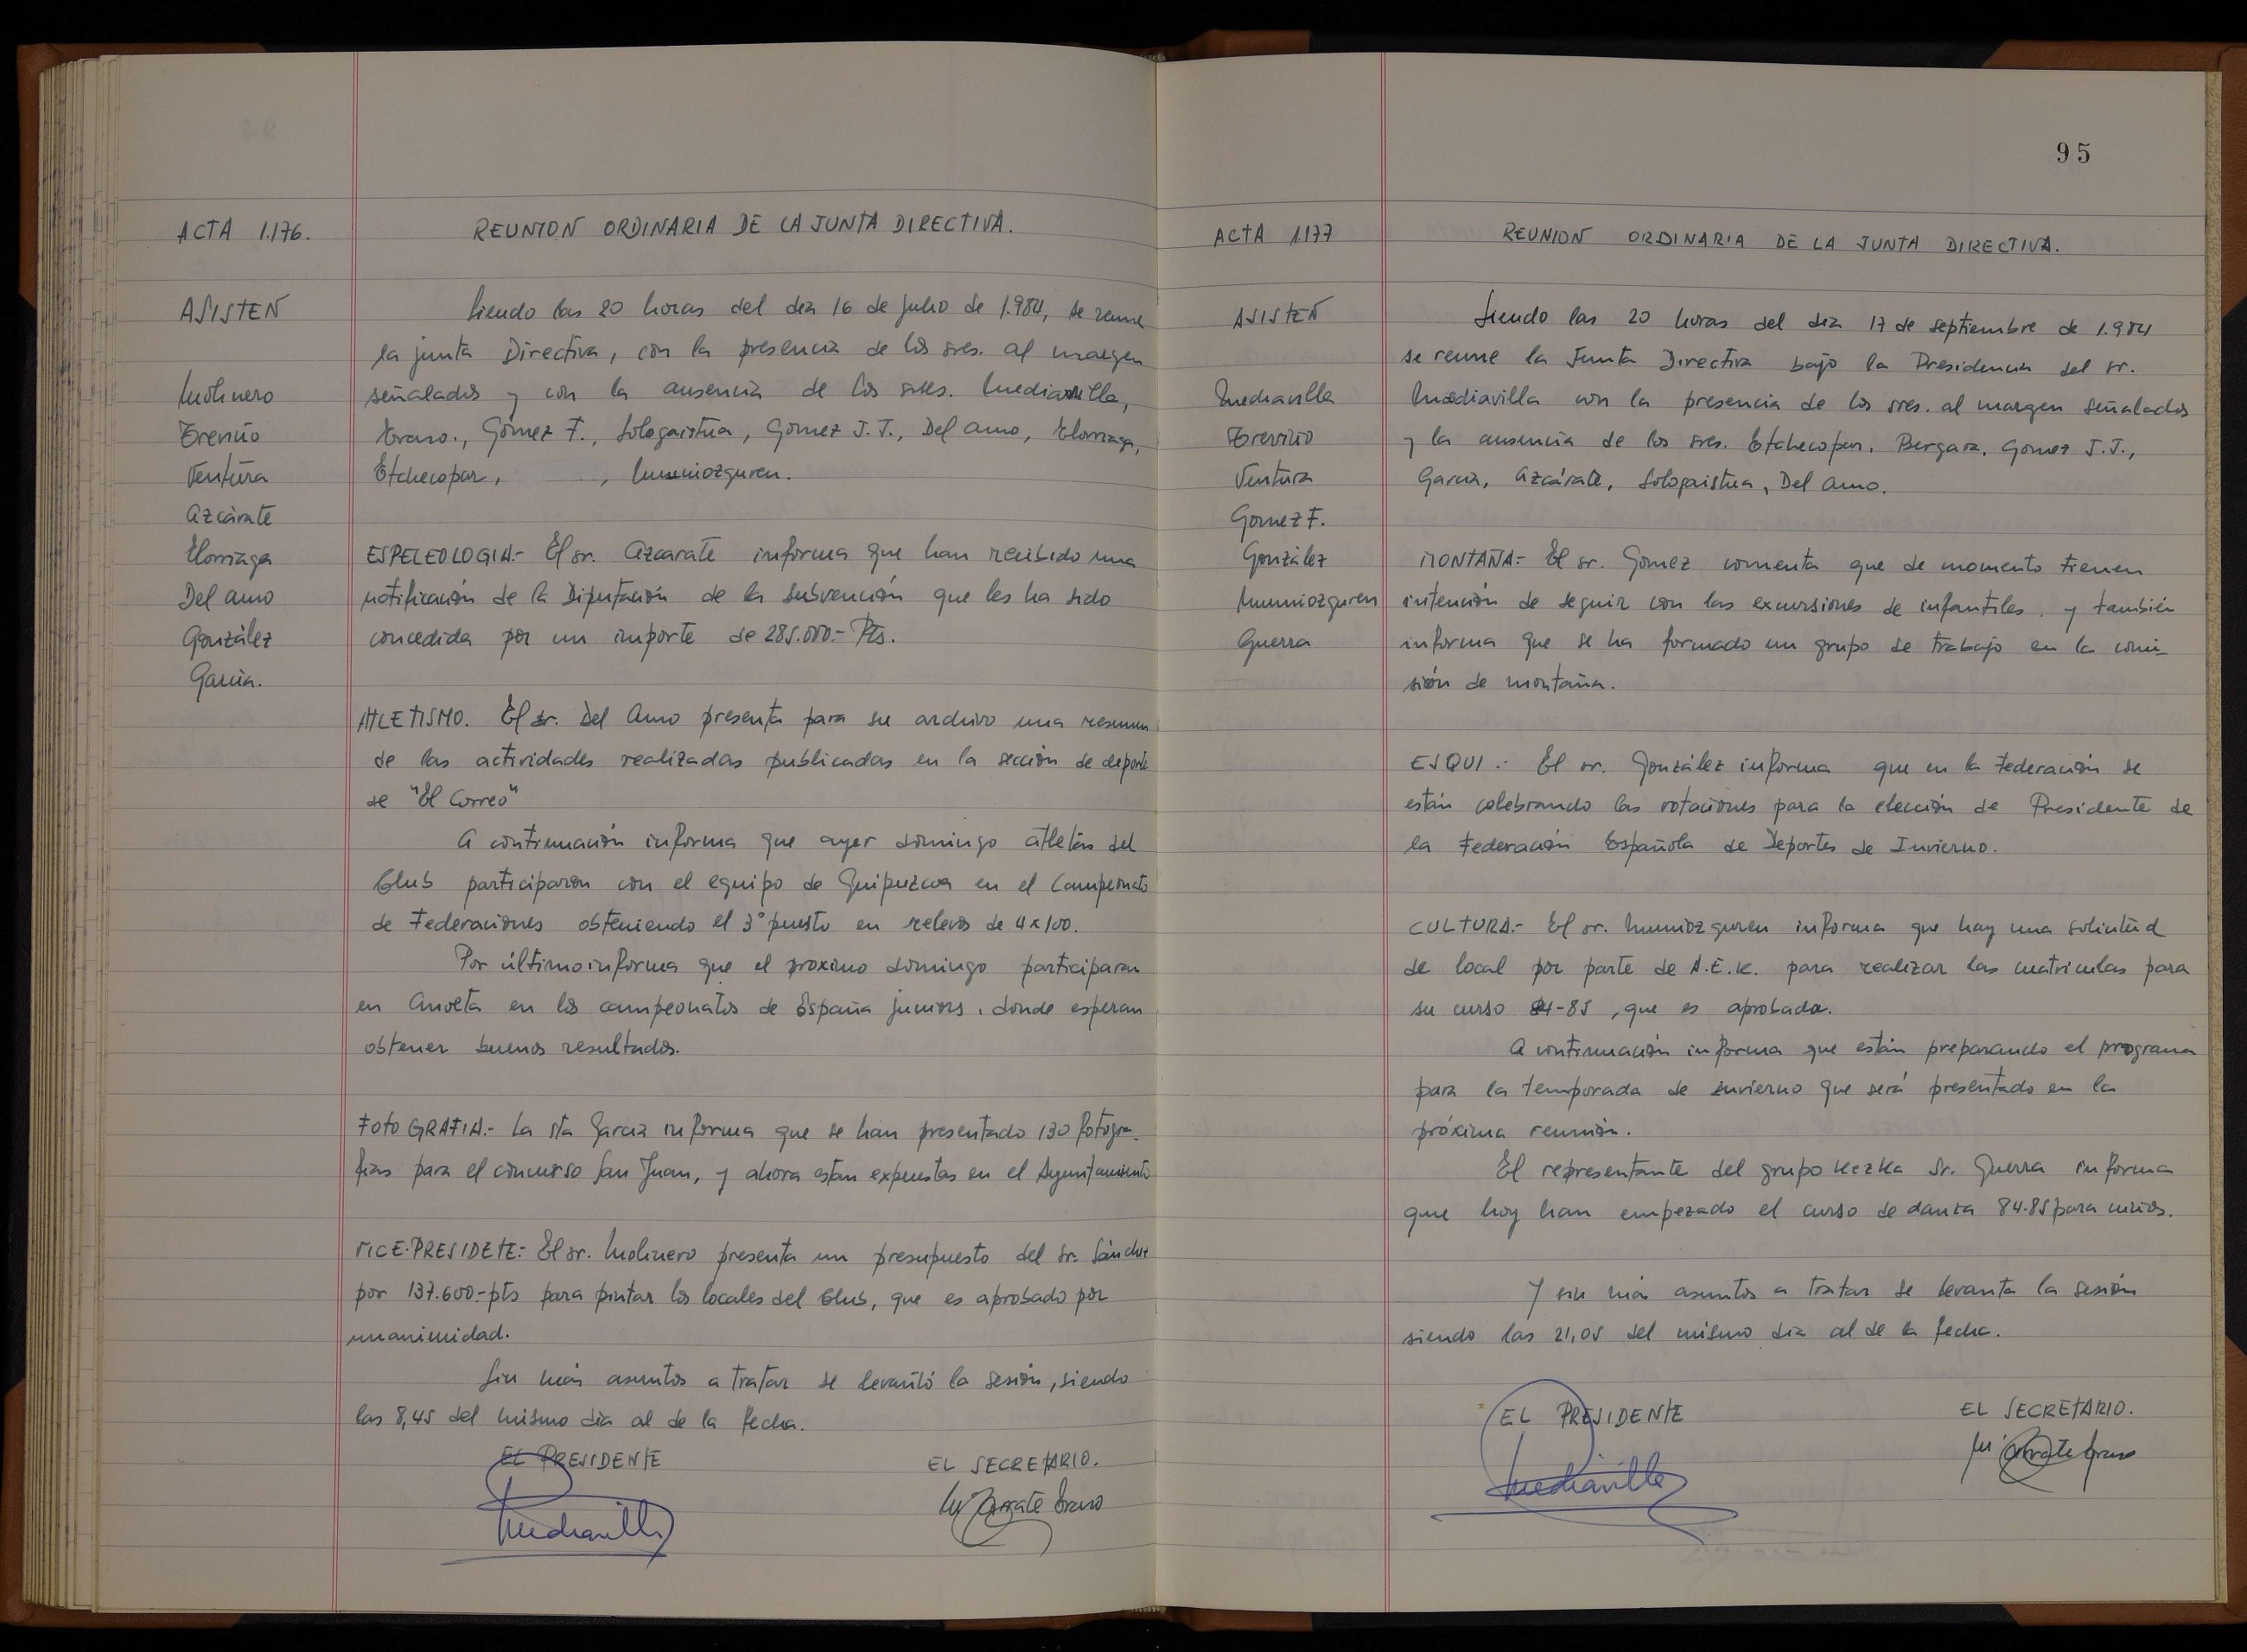 ACTA 1.176.
REUNION ORDINARIA DE LA JUNTA DIRECTIVA.
ASISTEN
Molinero
Treviño
Ventura
Azcárate
Elorriaga
Del Amo
González
Garcia.
Siendo las 20 horas del dia 16 de julio de 1.984, se reune
la junta Directiva, con la presencia de los sres. al margen
señalados y con la ausencia de los sres. Mediavilla,
Gómez F., Sologaistua, Gómez J.J., Del Amo, Elorriaga,
Etchecopar, , Muniozguren.
ESPELEOLOGIA.- El sr. Azcarate informa que han recibido una
notificación de la Diputación de la subvención que les ha sido
concedida por un importe de 285.000.- Pts.
ATLETISMO. El sr. Del Amo presenta para su archivo una resumen
de las actividades realizadas publicadas en la sección de deporte
de "El Correo"
A continuación informa que ayer domingo atletas del
Club participaron con el equipo de Guipuzcoa en el Campeonato
de Federaciones obteniendo el 3º puesto en relevos de 4x100.
Por último informa que el proximo domingo participaran
en Anoeta en los campeonatos de España juniors, donde esperan
obtener buenos resultados.
FOTOGRAFIA.- La sta Garcia informa que se han presentado 130 fotogra-
fias para el concurso San Juan, y ahora estan expuestas en el Ayuntamiento
VICE-PRESIDETE:- El sr. Molinero presenta un presupuesto del sr. Sánchez
por 137.600.- pts para pintar los locales del Club, que es aprobado por
unanimidad.
Sin más asuntos a tratar se levantó la sesión, siendo
las 8,45 del mismo dia al de la fecha.
EL PRESIDENTE
EL SECRETARIO.
Mediavilla
95
ACTA 1.177
REUNION ORDINARIA DE LA JUNTA DIRECTIVA.
ASISTEN
Mediavilla
Treviño
Ventura
Gomez F.
González
Muniozguren
Guerra
Siendo las 20 horas del dia 17 de septiembre de 1.984
se reune la Junta Directiva bajo la Presidencia del sr.
Mediavilla con la presencia de los sres. al margen señalados
y la ausencia de los sres. Etchecopar, Bergara, Gomez J.J.,
Garcia, Azcárate, Sologaistua, Del Amo.
MONTAÑA:- El sr. Gomez comenta que de momento tienen
intención de seguir con las excursiones de infantiles, y también
informa que se ha formado un grupo de trabajo en la comi-
sión de montaña.
ESQUI.- El sr. González informa que en la Federación se
están celebrando las votaciones para la elección de Presidente de
la Federación Española de Deportes de Invierno.
CULTURA.- El sr. Muniozguren informa que hay una solicitud
de local por parte de A.E.K. para realizar las matriculas para
su curso 84-85, que es aprobada.
A continuación informa que están preparando el programa
para la temporada de invierno que será presentado en la
próxima reunión.
El representante del grupo Kezka Sr. Guerra informa
que hoy han empezado el curso de danza 84-85 para niños.
Y sin más asuntos a tratar se levanta la sesión
siendo las 21,05 del mismo dia al de la fecha.
EL PRESIDENTE
EL SECRETARIO.
Mediavilla